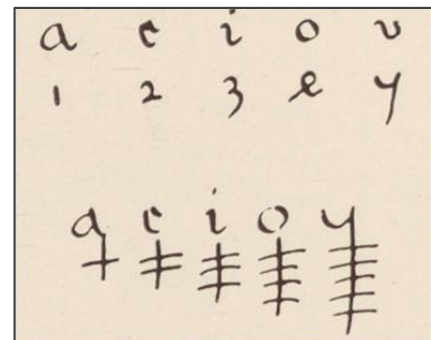 a e i o v
1 2 3 e y
a e i o y